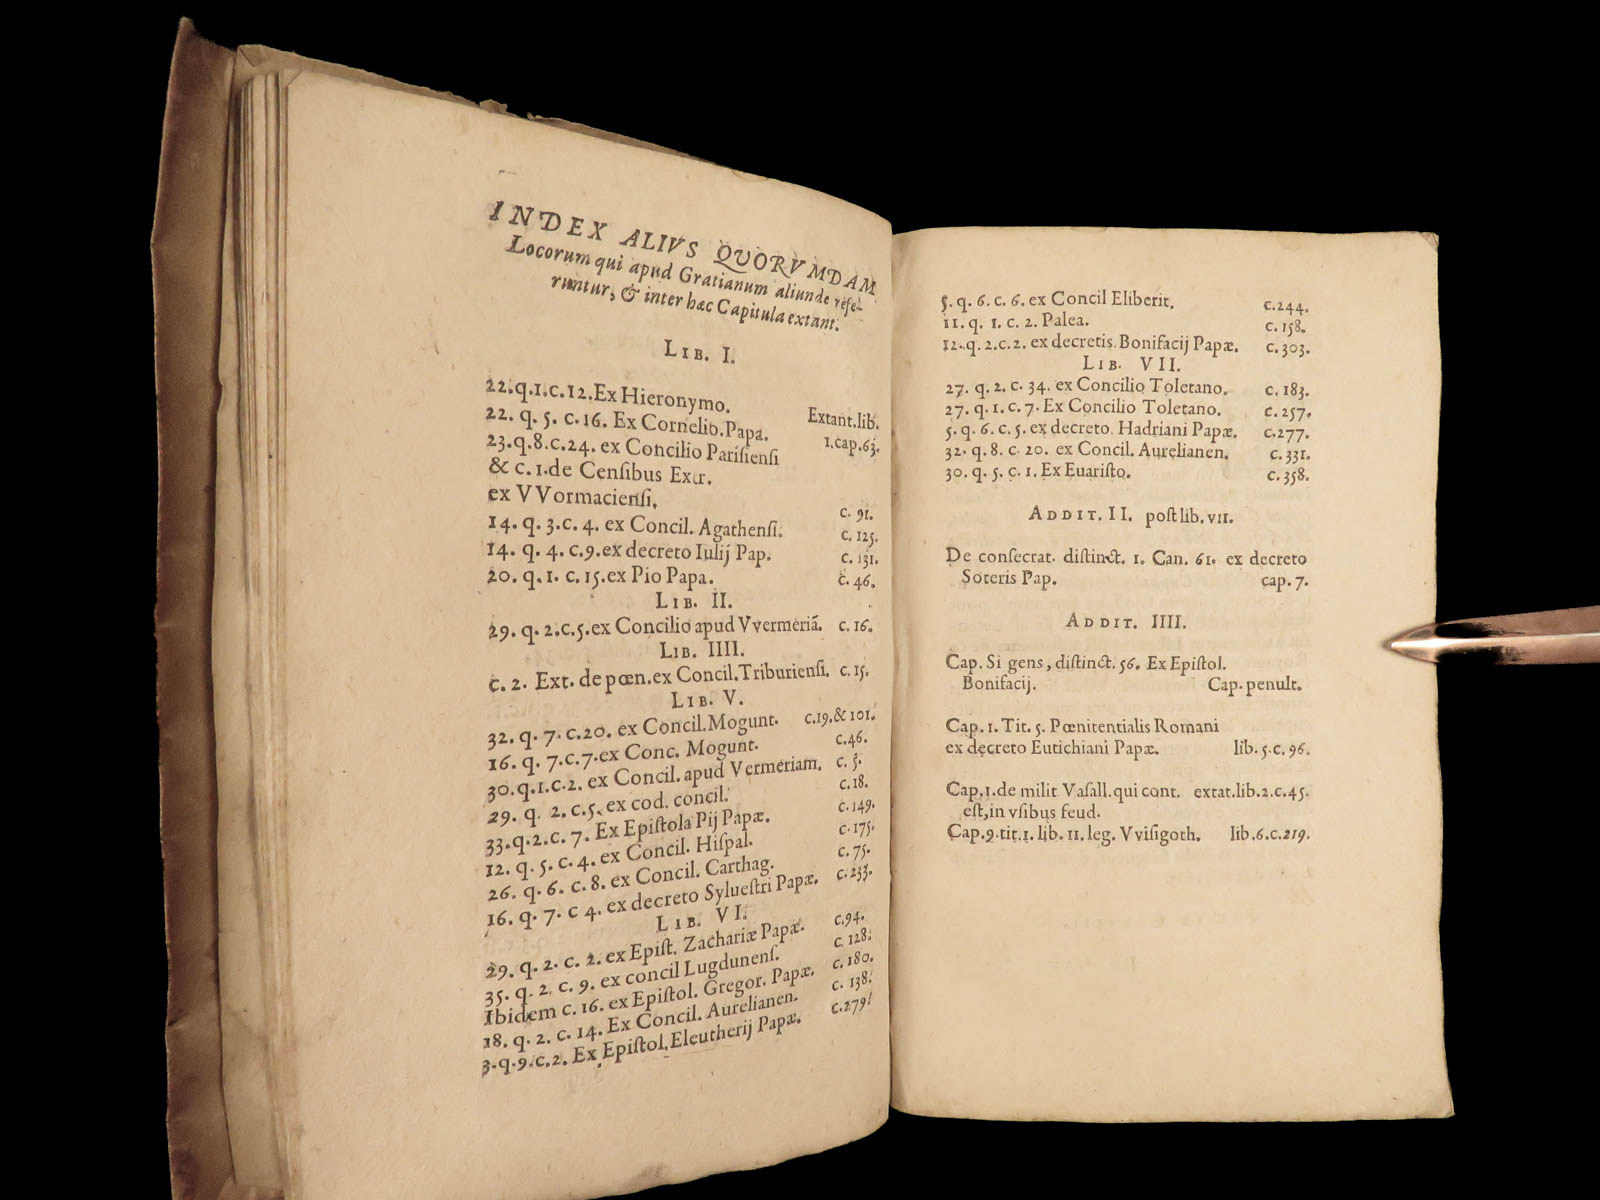 INDEX ALIVS QUORVMDAM
Locorum qui apud Gratianum aliunde refe-
runtur, & inter hæc Capitula extant.
LIB. I.
22.q.1.c.12.Ex Hieronymo.
22. q. 5. c.16. Ex Cornelio.Papa. Extant.lib.
23.q.8.c.24. ex Concilio Parisiensi 1.cap.63.
& c.1.de Censibus Extr.
ex VVormaciensi, c. 91.
14. q. 3.c. 4. ex Concil. Agathensi. c. 125.
14. q. 4. c.9.ex decreto Iulij Pap. c. 131.
20. q.1. c. 15.ex Pio Papa. c. 46.
LIB. II.
29. q. 2.c.5.ex Concilio apud Vvermeriã. c. 16.
LIB. IIII.
c. 2. Ext. de pœn.ex Concil.Triburiensi. c. 15.
LIB. V.
32. q. 7. c.20. ex Concil.Mogunt. c.19.& 101.
16. q. 7.c.7.ex Conc. Mogunt. c.46.
30.q.1.c.2. ex Concil.apud Vermeriam. c. 5.
29. q. 2. c.5. ex cod. concil. c.18.
33.q.2.c. 7. Ex Epistola Pij Papæ. c.149.
12. q. 5. c. 4. ex Concil. Hispal. c.175.
26. q. 6. c. 8. ex Concil. Carthag. c.75.
16. q. 7. c 4. ex decreto Syluestri Papæ. c.233.
LIB. VI.
29. q. 2. c. 2. ex Epist. Zachariæ Papæ. c.94.
35. q. 2. c. 9. ex concil Lugdunens. c. 128.
Ibidem c. 16. ex Epistol. Gregor. Papæ. c. 180.
18. q. 2. c. 14. Ex Concil. Aurelianen. c. 138.
3.q.9.c.2. Ex Epistol.Eleutherij Papæ. c.279.
5. q. 6. c. 6. ex Concil Eliberit. c.244.
11. q. 1. c. 2. Palea. c.158.
12. q. 2.c.2. ex decretis. Bonifacij Papæ. c.303.
LIB. VII.
27. q. 2. c. 34. ex Concilio Toletano. c. 183.
27. q. 1. c. 7. Ex Concilio Toletano. c.257.
5. q. 6. c. 5. ex decreto. Hadriani Papæ. c.277.
32. q. 8. c. 20. ex Concil. Aurelianen. c. 331.
30. q. 5. c. 1. Ex Euaristo. c.358.
ADDIT. II. post lib. VII.
De consecrat. distinct. 1. Can. 61. ex decreto
Soteris Pap. cap. 7.
ADDIT. IIII.
Cap. Si gens, distinct. 56. Ex Epistol.
Bonifacij. Cap. penult.
Cap. 1. Tit. 5. Pœnitentialis Romani
ex decreto Eutichiani Papæ. lib. 5.c.96.
Cap.1.de milit Vasall.qui cont. extat.lib.2.c.45.
est,in vsibus feud.
Cap.9.tit.1. lib. 11. leg. Vvisigoth. lib.6.c.219.